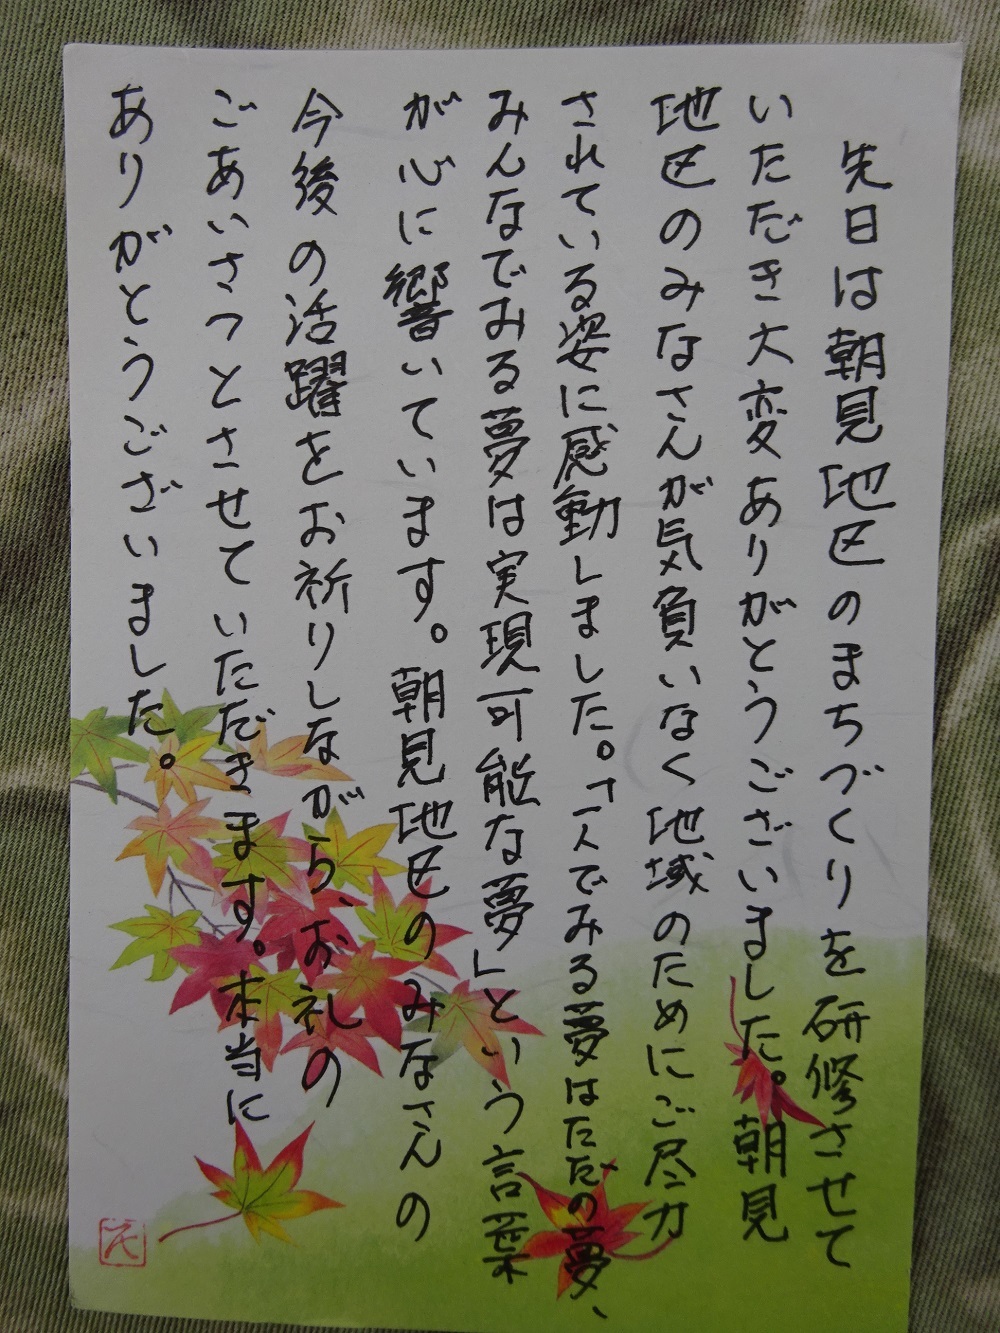 先日は朝見地区のまちづくりを研修させて
いただき大変ありがとうございました。朝見
地区のみなさんが気負いなく地域のためにご尽力
されている姿に感動しました。「一人でみる夢はただの夢、
みんなでみる夢は実現可能な夢」という言葉
が心に響いています。朝見地区のみなさんの
今後の活躍をお祈りしながら、お礼の
ごあいさつとさせていただきます。本当に
ありがとうございました。